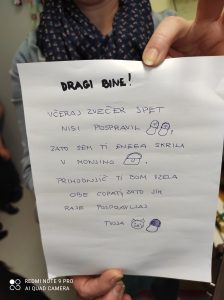 DRAGI BINE!
VČERAJ ZVEČER SPET
NISI POSPRAVIL
ZATO SEM TI ENEGA SKRILA
V HONSING
PRIHODNJIČ TI BOM VZELA
OBE COPATI, ZATO JIH
RAJE POSPRAVLJAJ
TVOJA
REDMI NOTE 9 PRO
AI QUAD CAMERA